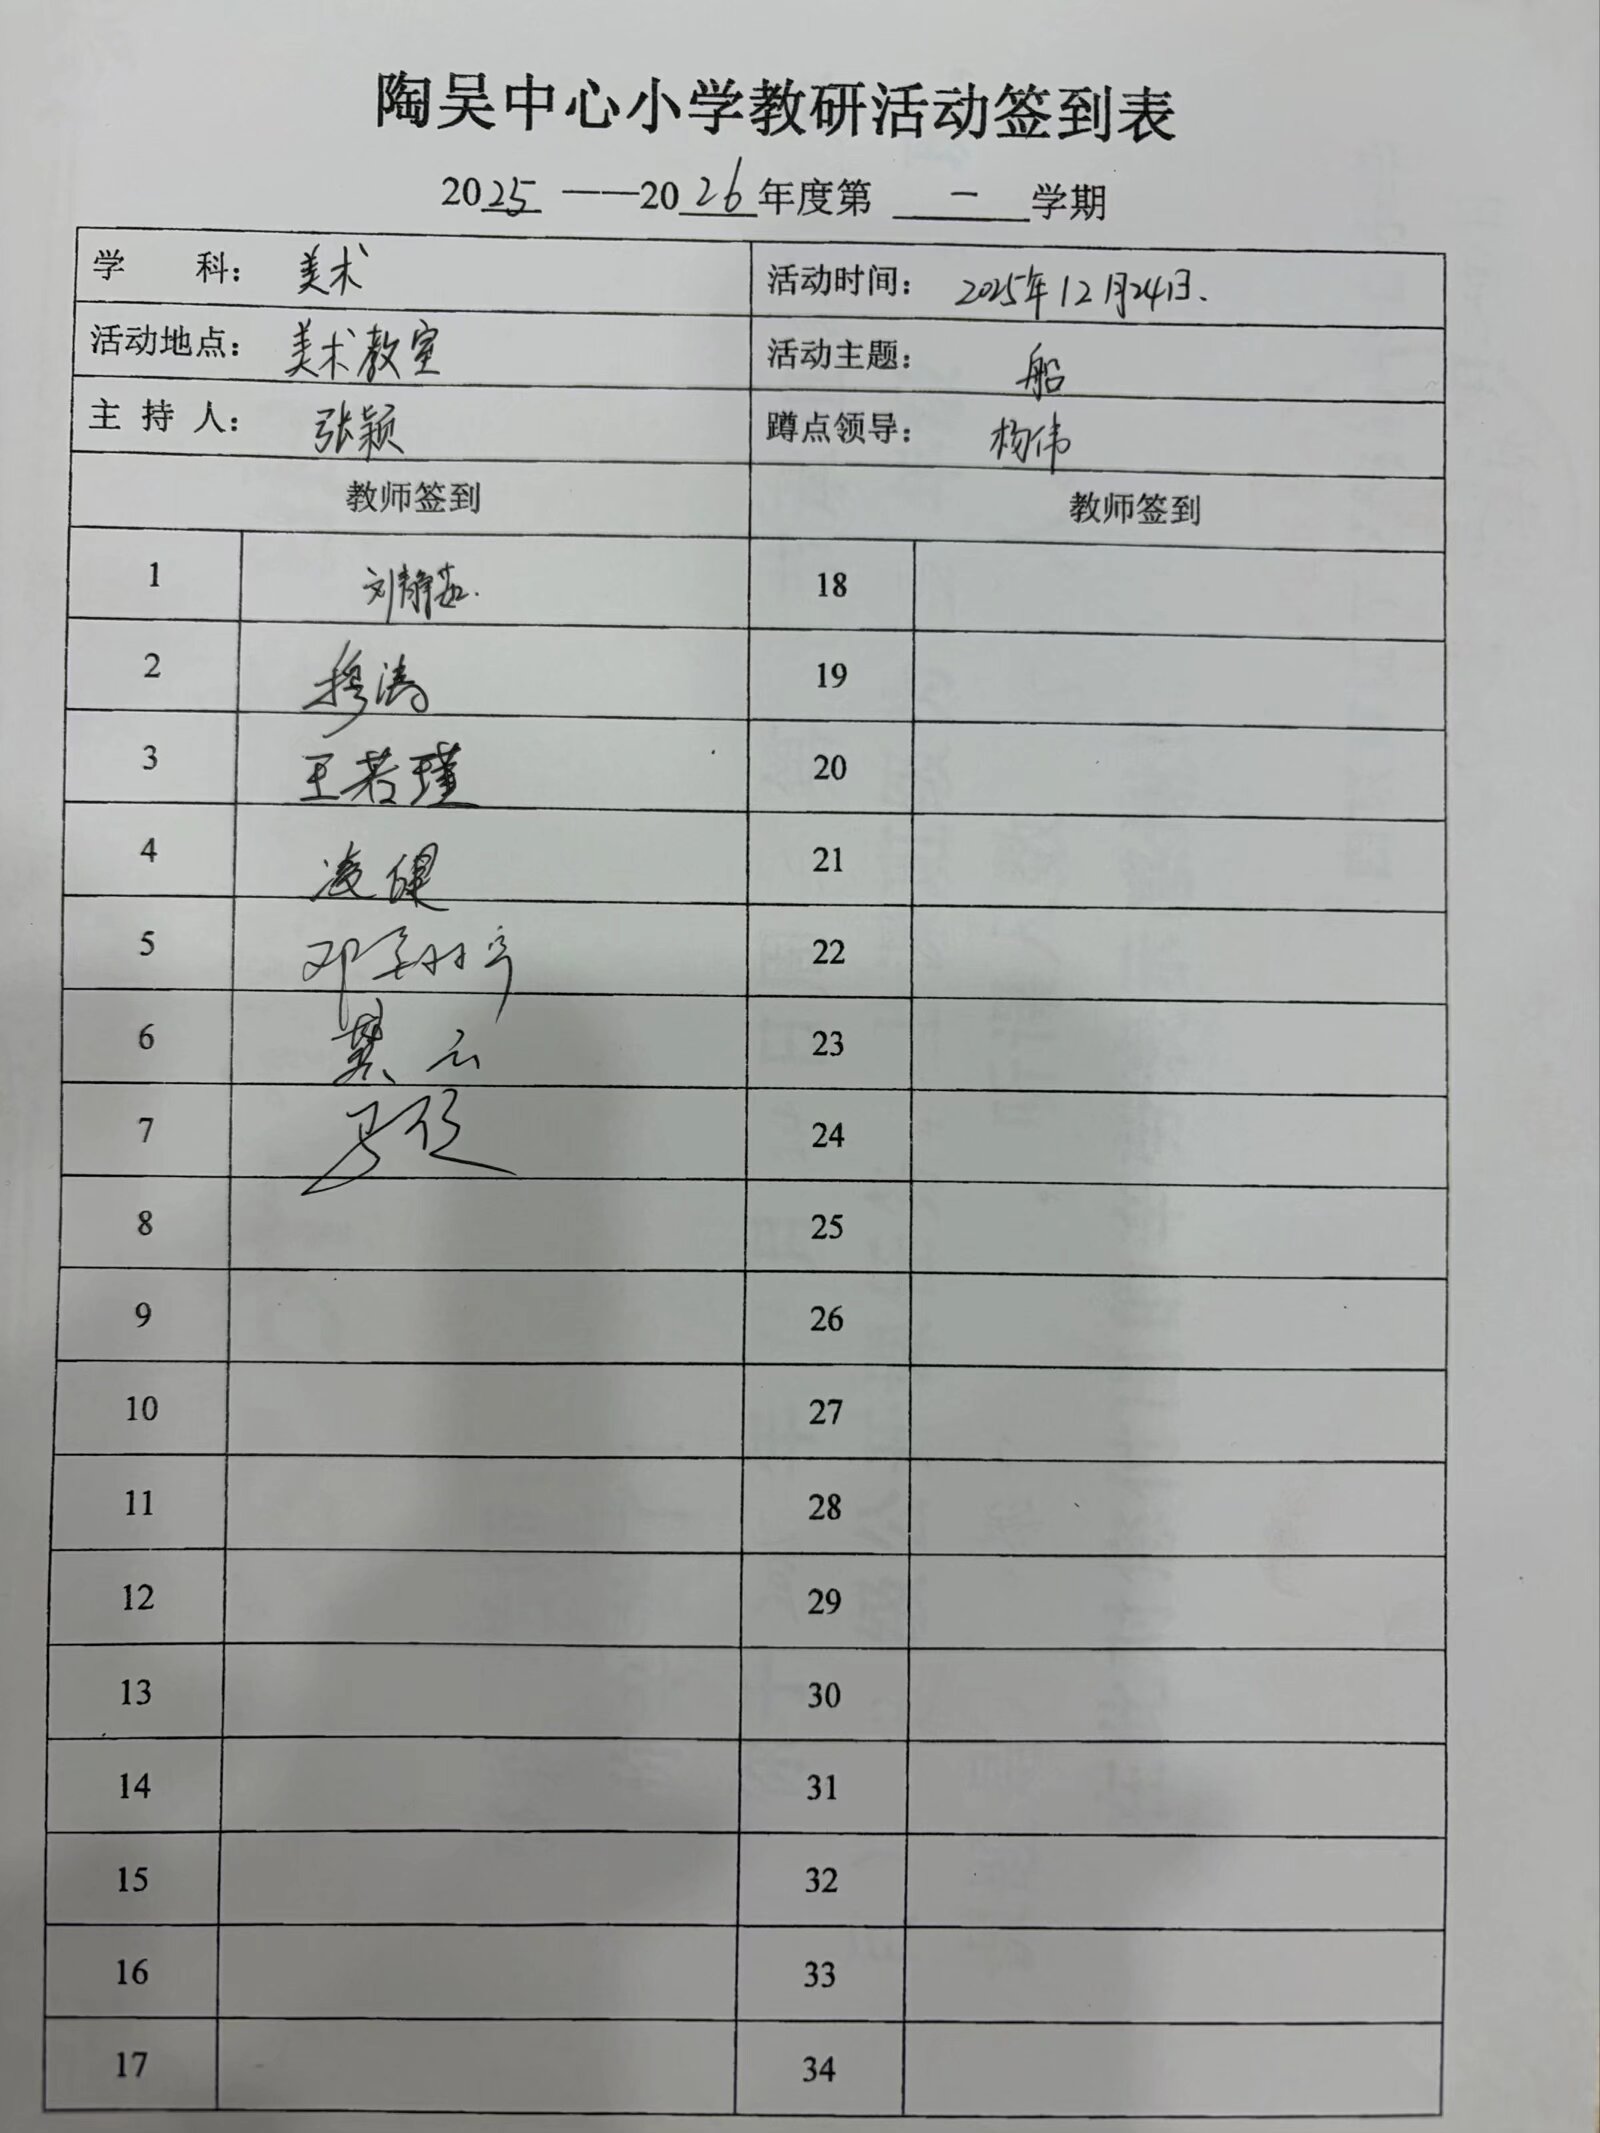 陶吴中心小学教研活动签到表
2025 ——2026年度第 一 学期
学 科： 美术 活动时间： 2025年12月24日.
活动地点： 美术教室 活动主题： 船
主 持 人： 张颖 蹲点领导： 杨伟
教师签到 教师签到
1 刘静茹. 18
2 穆涛 19
3 王若瑾 20
4 凌健 21
5 邓 22
6 23
7 马 24
8 25
9 26
10 27
11 28
12 29
13 30
14 31
15 32
16 33
17 34